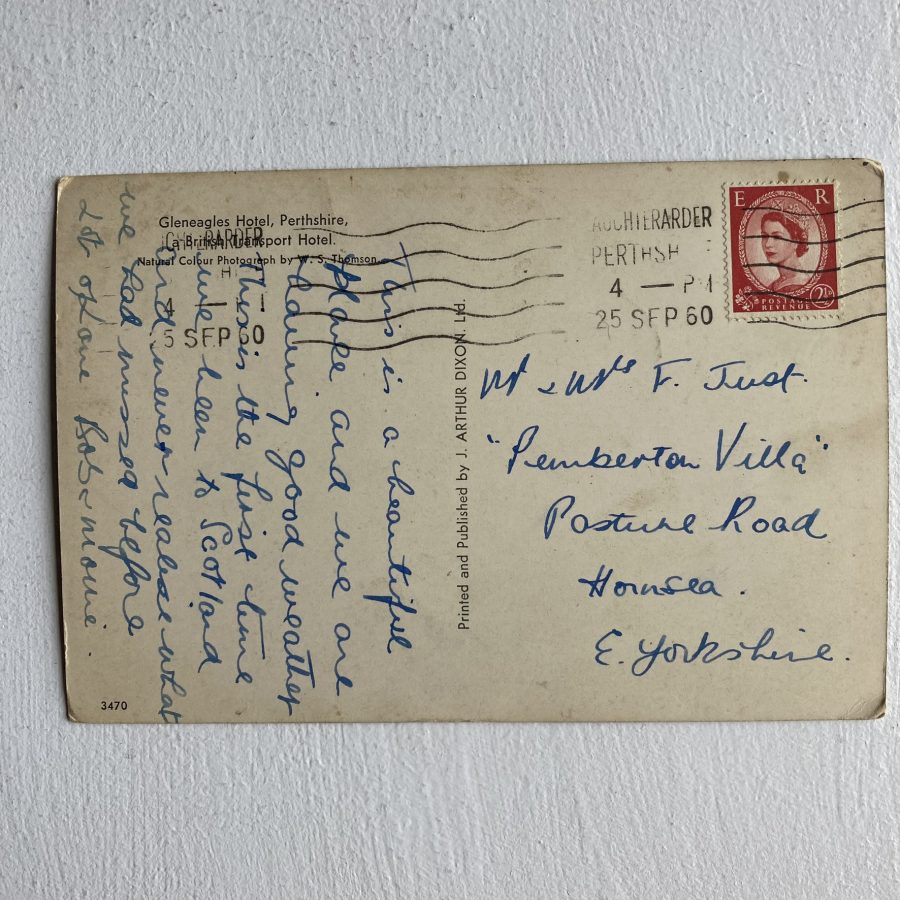 Gleneagles Hotel, Perthshire,
(a British Transport Hotel.
Natural Colour Photograph by W. S. Thomson.
CHTERARDER
H
4 —
5 SEP 60
AUCHTERARDER
PERTHSH E
4 — PM
25 SEP 60
E R
POSTAGE
REVENUE
2½
This is a beautiful
place and we are
having good weather
This is the first time
we've been to Scotland
and never realise what
we had missed before
Lot of love Bob & Mone.
Printed and Published by J. ARTHUR DIXON. Ltd.
Mr & Mrs F. Just.
"Pemberton Villa"
Pasture Road
Hornsea.
E. Yorkshire.
3470